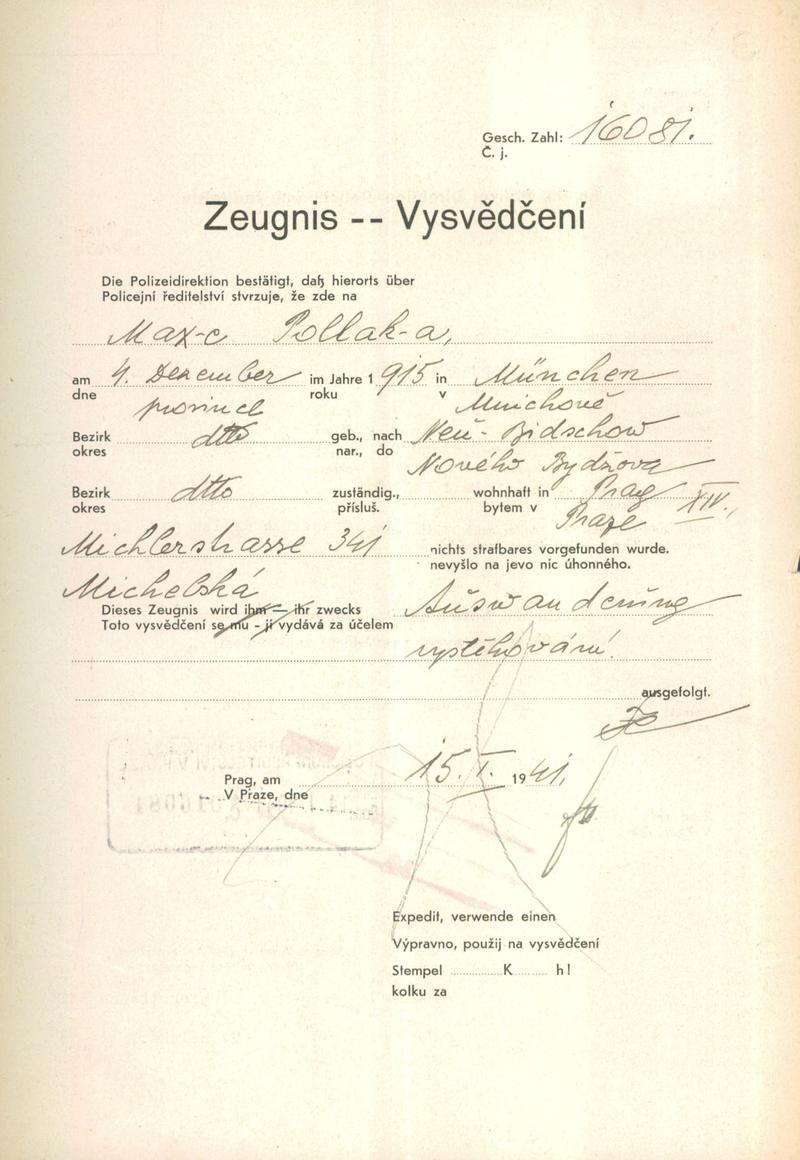 Gesch. Zahl: 16081.
Č. j.
Zeugnis -- Vysvědčení
Die Polizeidirektion bestätigt, daß hierorts über
Policejní ředitelství stvrzuje, že zde na
Max-e Pollak-a,
am 4. Dezember im Jahre 1915 in München
dne prosince roku v Mnichově
Bezirk dtto geb., nach Neu-Bidschow
okres nar., do Nového Bydžova
Bezirk dtto zuständig., wohnhaft in Prag XIV.,
okres přísluš. bytem v Praze
Michlerstrasse 341 nichts strafbares vorgefunden wurde.
Michelská nevyšlo na jevo nic úhonného.
Dieses Zeugnis wird ihm — ihr zwecks Auswanderung
Toto vysvědčení se mu - jí vydává za účelem
vystěhování.
ausgefolgt.
Prag, am 15. I. 1941.
V Praze, dne
Expedit, verwende einen
Výpravno, použij na vysvědčení
Stempel K h!
kolku za